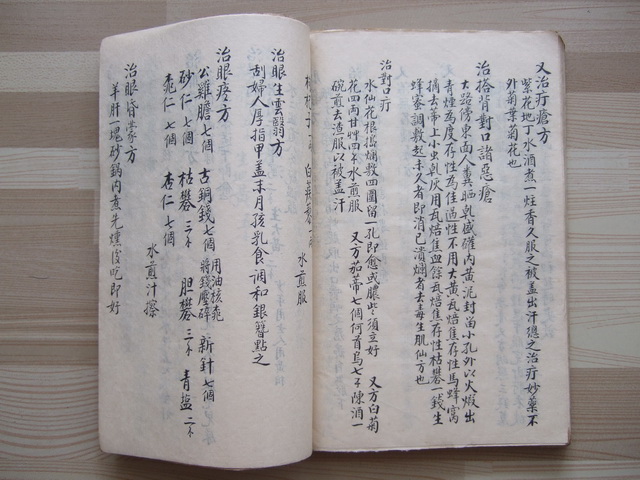 又治疔瘡方
紫花地丁水酒煮一炷香久服之被盖出汗隐之治疔妙藥不
外菊葉菊花也
治搭背對口諸惡瘡
大路傍東向人糞晒乾盛礶内黄泥封固小孔外以火煅出
青煙為度存性為佳過性不用大黄瓦焙焦存性馬蜂窩
摘去蒂上小虫乾灰用瓦焙焦血餘瓦焙焦存性枯礬一錢生
蜂蜜調敷起未久者即消已潰爛者去毒生肌仙方也
治對口疔
水仙花根搗爛敷四圍留一孔即愈或膿些須立好 又方白菊
花四两甘艸四不水煎服 又方茄蒂七個何首烏七不陳酒一
碗煎去渣服以被盖汗
水煎服
治眼生雲翳方
刮婦人厚指甲盖末月孩乳食調和銀簪點之
治眼疼方
公雞膽七個 古銅錢七個 用油核秃將錢塵碎 新針七個
砂仁七個 枯礬三不 胆礬三不 青盐二不
桃仁七個 杏仁七個 水煎汁擦
治眼昏蒙方
羊肝一塊砂鍋内煮先燻後吃即好